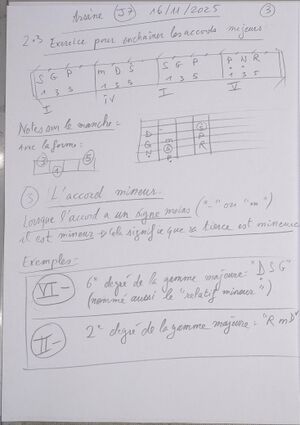 Arsène J7 16/11/2025 ③
2.3 Exercice pour enchaîner les accords majeurs
S G P m D S S G P P N R
1 3 5 1 3 5 1 3 5 1 3 5
I IV I V
Notes sur le manche:
avec la forme:
③ ⑤
①
D G
G m
N P R
③ L'accord mineur.
Lorsque l'accord a un signe moins ("-" ou "m")
il est mineur → cela signifie que sa tierce est mineure
Exemples:
VI- 6e degré de la gamme majeure: "D S G"
(nommé aussi le "relatif mineur")
II- 2e degré de la gamme majeure = "R m D"